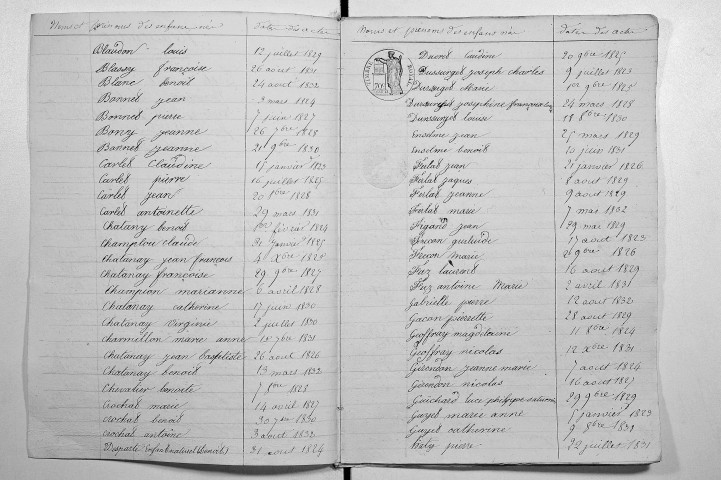 Noms et prénoms des enfans nés Date des actes
Blaudon louis 12 juillet 1829
Blassy françoise 26 aout 1831
Blanc benoit 24 aout 1832
Bonnet jean 3 mars 1824
Bonnet pierre 7 juin 1827
jeanne 26 7bre 1828
Bonnet jeanne 21 9bre 1830
Carlet Claudine 17 janvier 1823
Carlet pierre 16 juillet 1825
Carlet jean 20 1828
Carlet antoinette 29 mars 1831
Chatany benoit 1er fevrier 1824
claude 31 janvier 1825
Chatanay jean françois 4 Xbre
Chatanay françoise 29 9bre 1827
Champion marianne 6 avril 1828
Chatanay catherine 17 juin 1830
Chatanay virginie 2 juillet 1830
Charmillon marie anne 1831
Chatanay jean baptiste 26 aout 1826
Chatanay benoit 13 mars 1832
Chevalier benoite 7 8bre 1823
Crochat marie 14 avril 1827
Crochat benoit 30 1830
Crochat antoine 3 aout 1832
Enfant naturel (benoit) 31 aout 1824
Noms et prénoms des enfans nés Date des actes
Claudine 20 9bre 1825
Dussurget joseph charles 9 juillet 1823
Dussurget 1er 9bre
Dussurget josephine françoise 24 mars 1828
Dussurget louise 18 8bre 1830
Enselme jean 25 mars 1829
Enselme benoit 10 juin 1831
Ferlat jean 21 janvier 1826
Ferlat jaques 8 aout 1829
Ferlat jeanne 9 aout 1829
Ferlat marie 7 mai 1832
Figand jean 29 mai 1829
Frecon 17 aout 1823
Frecon marie 26 9bre 1826
Fuz laurent 16 aout 1829
Fuz antoine Marie 2 avril 1831
Gabrielle pierre 12 aout 1832
Gacon pierrette 28 aout 1829
Geoffray magdelaine 11 8bre 1824
Geoffray nicolas 12 Xbre 1831
Girondon jeanne marie 7 aout 1824
Girondon nicolas 16 aout 1827
Guichard luce philippe 29 9bre 1829
Guyet marie anne 5 janvier 1823
Guyet catherine 9 8bre 1831
pierre 22 juillet 1831